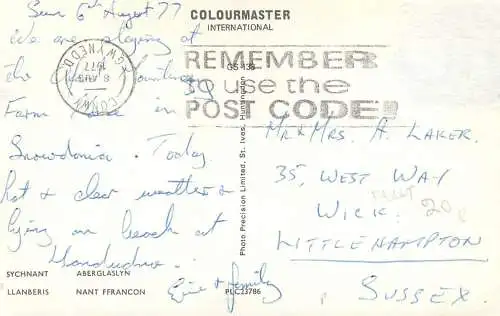 Sun 6th August 77
We are staying at
the
Farm in
Snowdonia. Today
hot & clear weather &
lying on beach at
Llandudno.
Eric & family
SYCHNANT ABERGLASLYN
LLANBERIS NANT FFRANCON
COLOURMASTER
INTERNATIONAL
GWYNEDD
8 AUG
1977
CONWY
REMEMBER
to use the
POST CODE!!
GS 135
Photo Precision Limited, St. Ives, Huntingdon
PLC23786
Mr & Mrs. A. LAKER.
35, WEST WAY
WICK.
LITTLEHAMPTON
SUSSEX.
20p